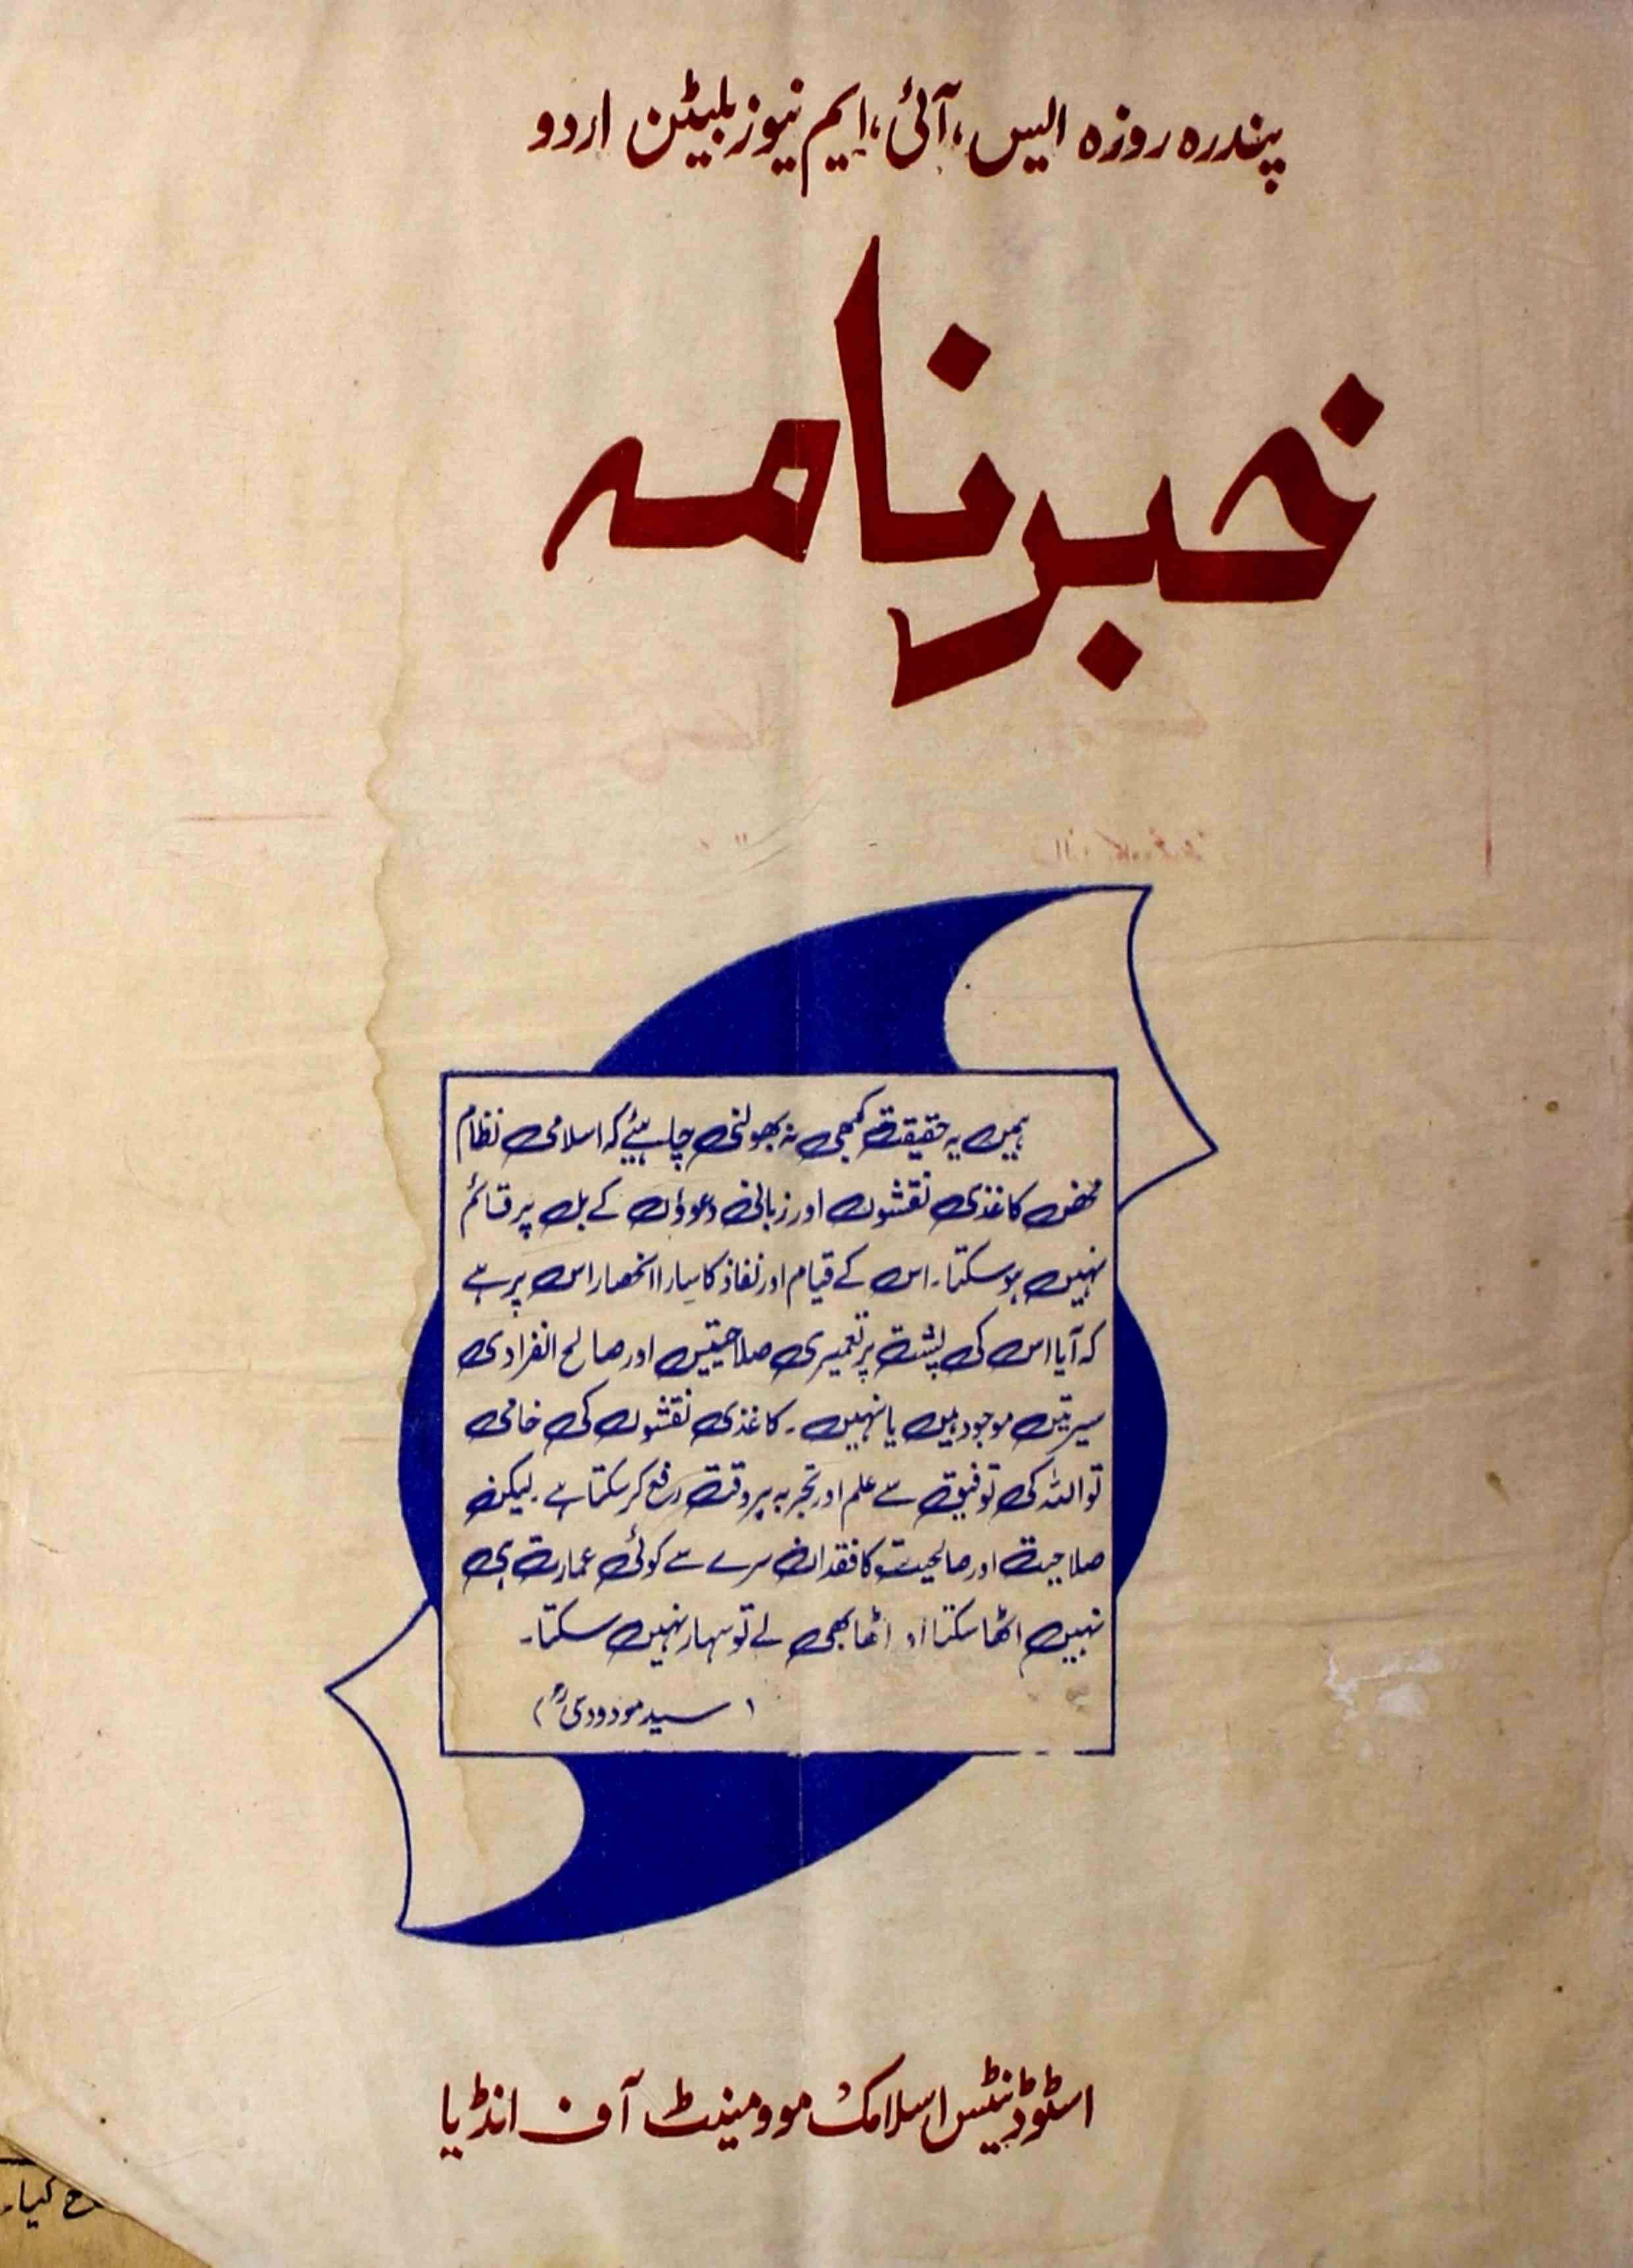 پندرہ روزہ ایس،آئی،ایم نیوز بلیٹن اردو
خبرنامہ
ہمیں یہ حقیقت کبھی نہ بھولنی چاہیئے کہ اسلامی نظام
محض کاغذی نقشوں اور زبانی دعوؤں کے بل پر قائم
نہیں ہو سکتا۔ اس کے قیام اور نفاذ کا سارا انحصار اس پر ہے
کہ آیا اس کی پشت پر تعمیری صلاحیتیں اور صالح انفرادی
سیرتیں موجود ہیں یا نہیں۔ کاغذی نقشوں کی خامی
تو اللہ کی توفیق سے علم اور تجربہ ہر وقت رفع کر سکتا ہے۔ لیکن
صلاحیت اور صالحیت کا فقدان سرے سے کوئی عمارت ہی
نہیں اٹھا سکتا اور اٹھا بھی لے تو سہار نہیں سکتا۔
(سید مودودیؒ)
اسٹوڈنٹس اسلامک موومینٹ آف انڈیا
کیا۔